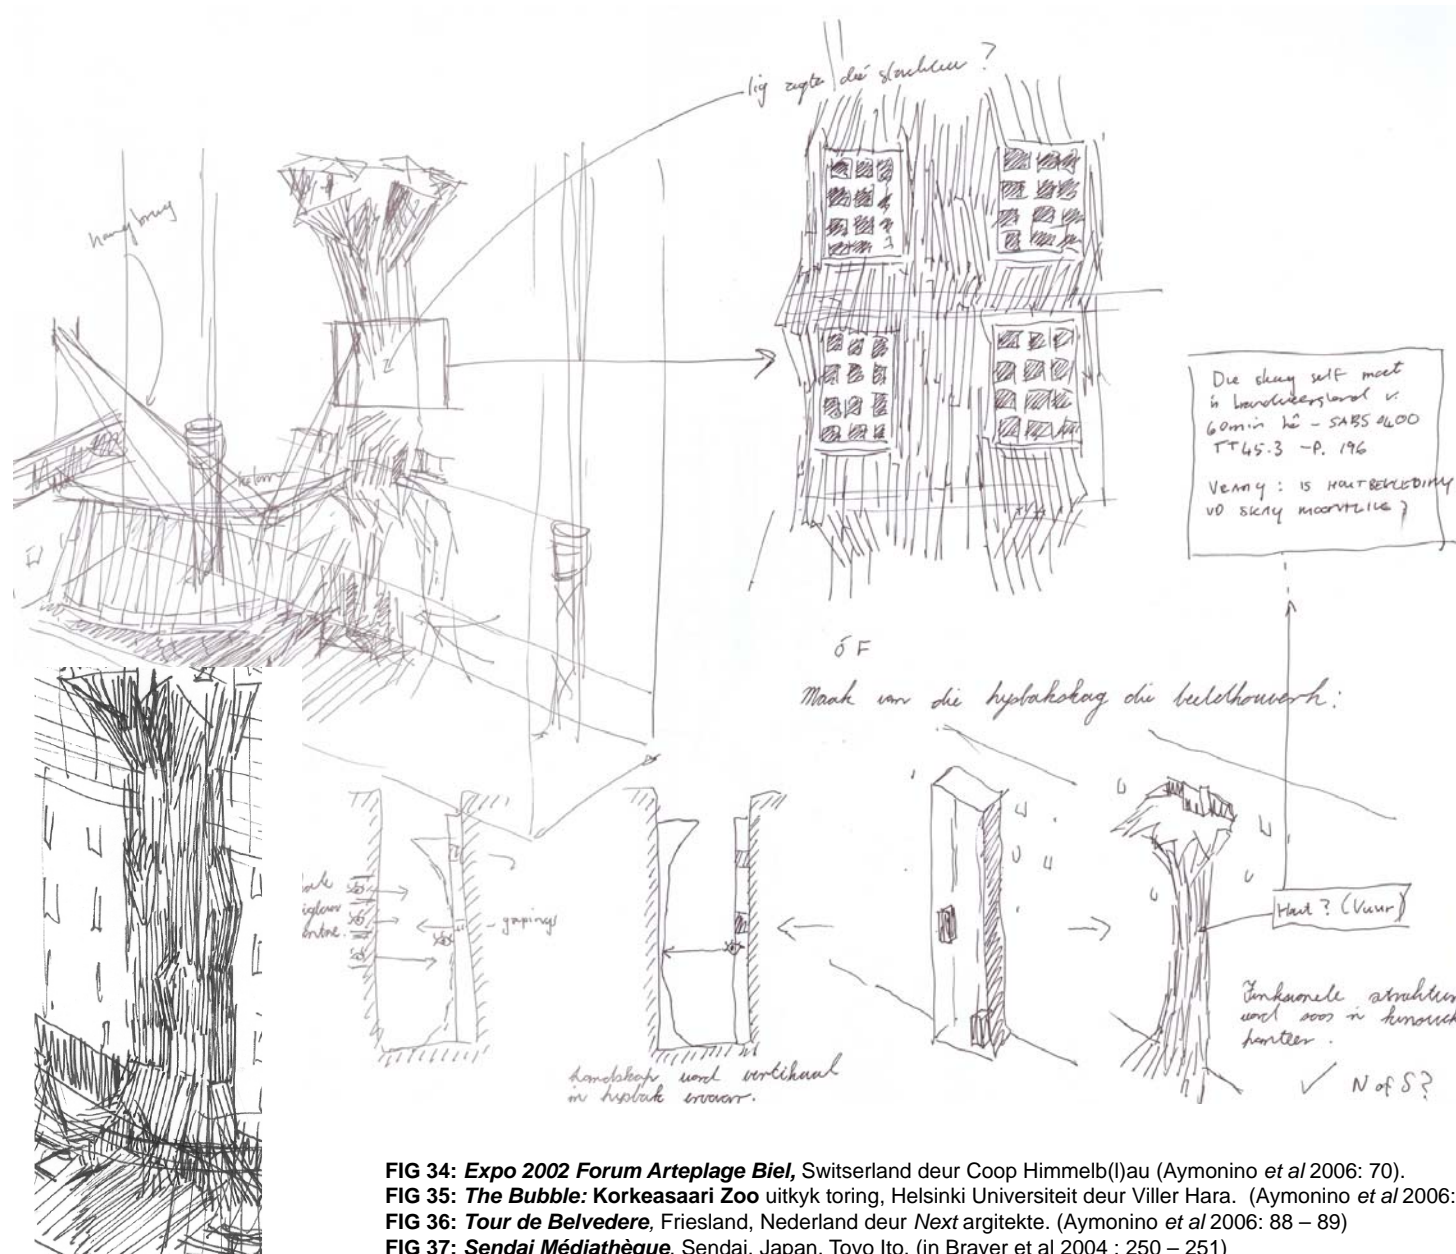 lig agter die strukture?
hangbrug
Die skag self moet
'n brandweerstand v.
60min hê - SABS 0400
TT45.3 - P. 196
VRAAG: IS HOUTBEKLEDING
VD SKAG MOONTLIK?
ÓF
Maak van die hysbakskag die beeldhouwerk:
- gapings
Hout? (Vuur)
Funksionele
word soos 'n
hanteer.
✓ N of S?
Landskap word vertikaal
in hysbak ervaar.
FIG 34: Expo 2002 Forum Arteplage Biel, Switserland deur Coop Himmelb(l)au (Aymonino et al 2006: 70).
FIG 35: The Bubble: Korkeasaari Zoo uitkyk toring, Helsinki Universiteit deur Viller Hara. (Aymonino et al 2006:
FIG 36: Tour de Belvedere, Friesland, Nederland deur Next argitekte. (Aymonino et al 2006: 88 – 89)
FIG 37: Sendai Médiathèque, Sendai, Japan, Toyo Ito. (in Brayer et al 2004 : 250 – 251)